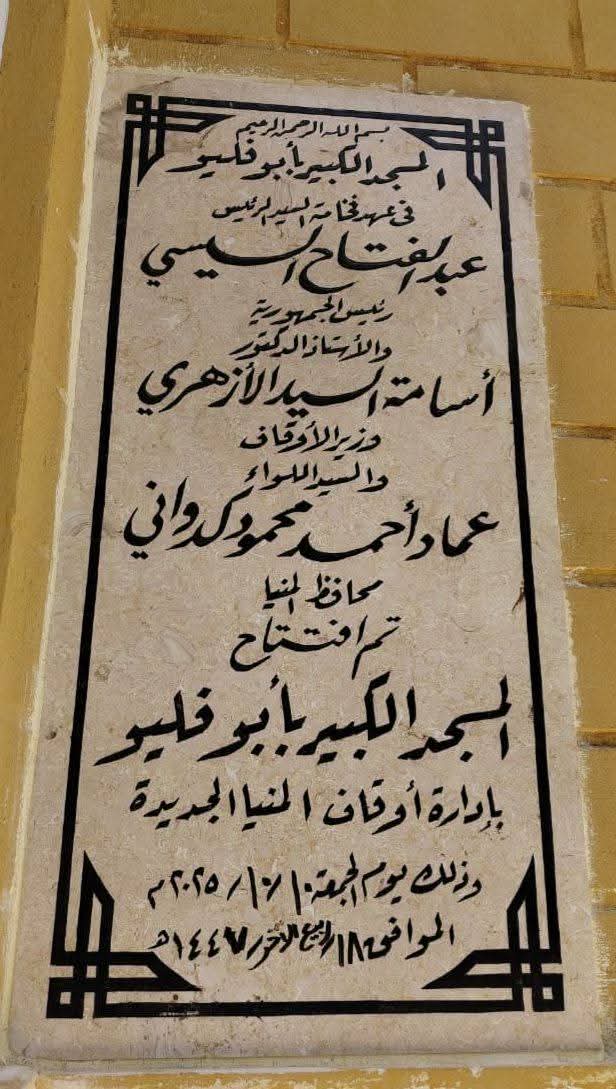 بسم الله الرحمن الرحيم
المسجد الكبير بأبو فليو
في عهد فخامة السيد الرئيس
عبد الفتاح السيسي
رئيس الجمهورية
والأستاذ الدكتور
أسامة السيد الأزهري
وزير الأوقاف
والسيد اللواء
عماد أحمد محمود كدواني
محافظ المنيا
تم افتتاح
المسجد الكبير بأبو فليو
بإدارة أوقاف المنيا الجديدة
وذلك يوم الجمعة ١٠/١٠/٢٠٢٥م
الموافق ١٨/ربيع الآخر/١٤٤٧هـ